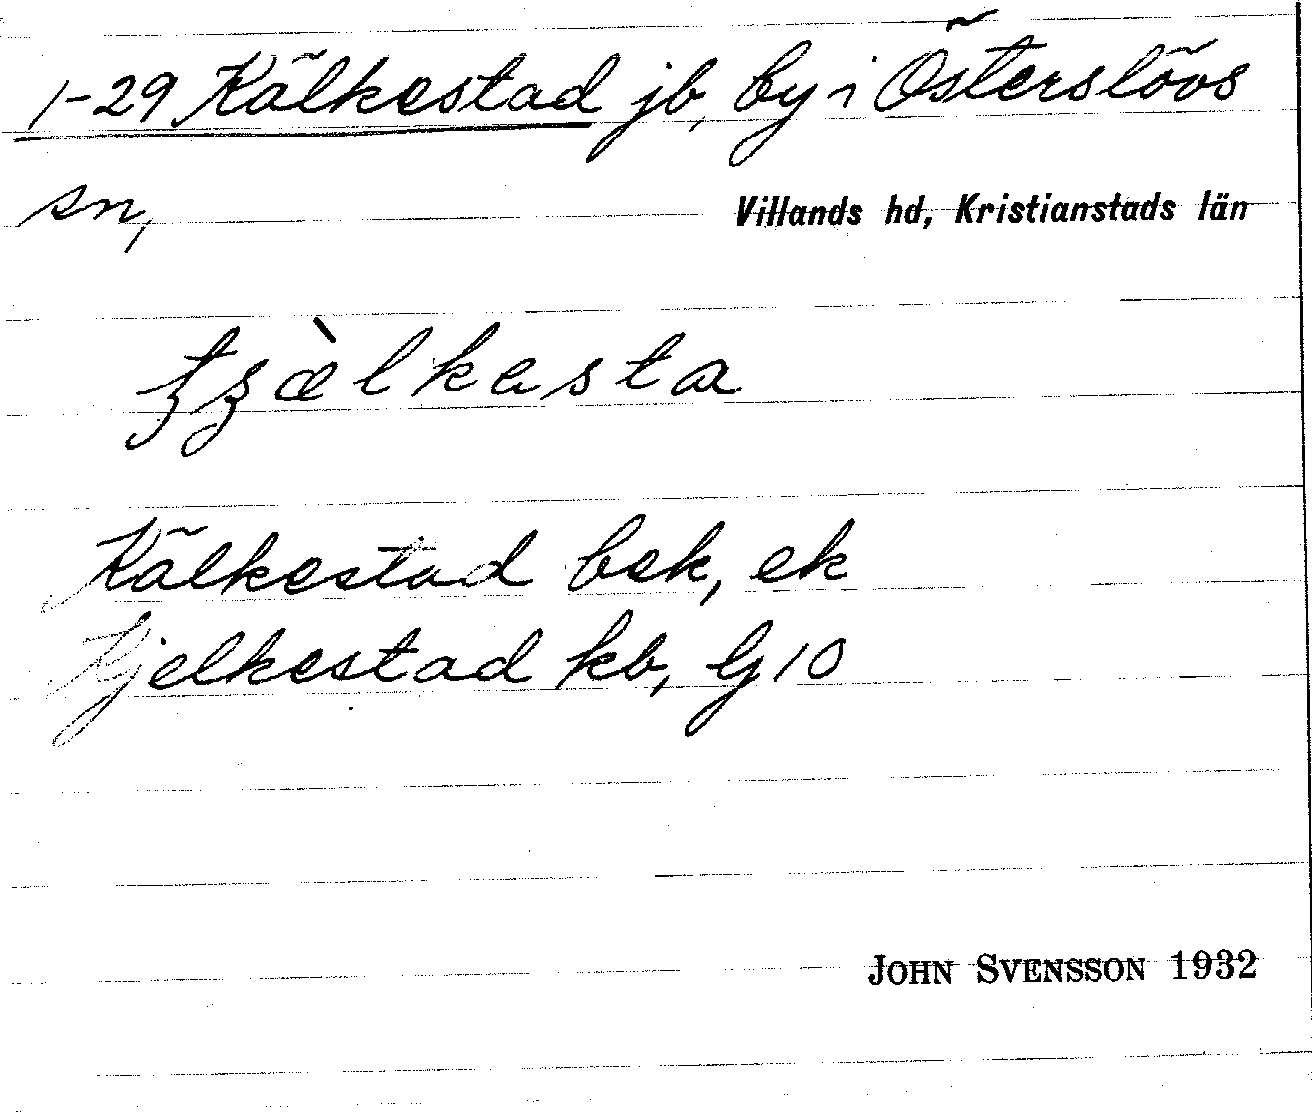 1-29 Kälkestad jb, by i Österslövs
sn, Villands hd, Kristianstads län
Kälkestad bek, ek
Kjelkestad kb, Gj 10
JOHN SVENSSON 1932